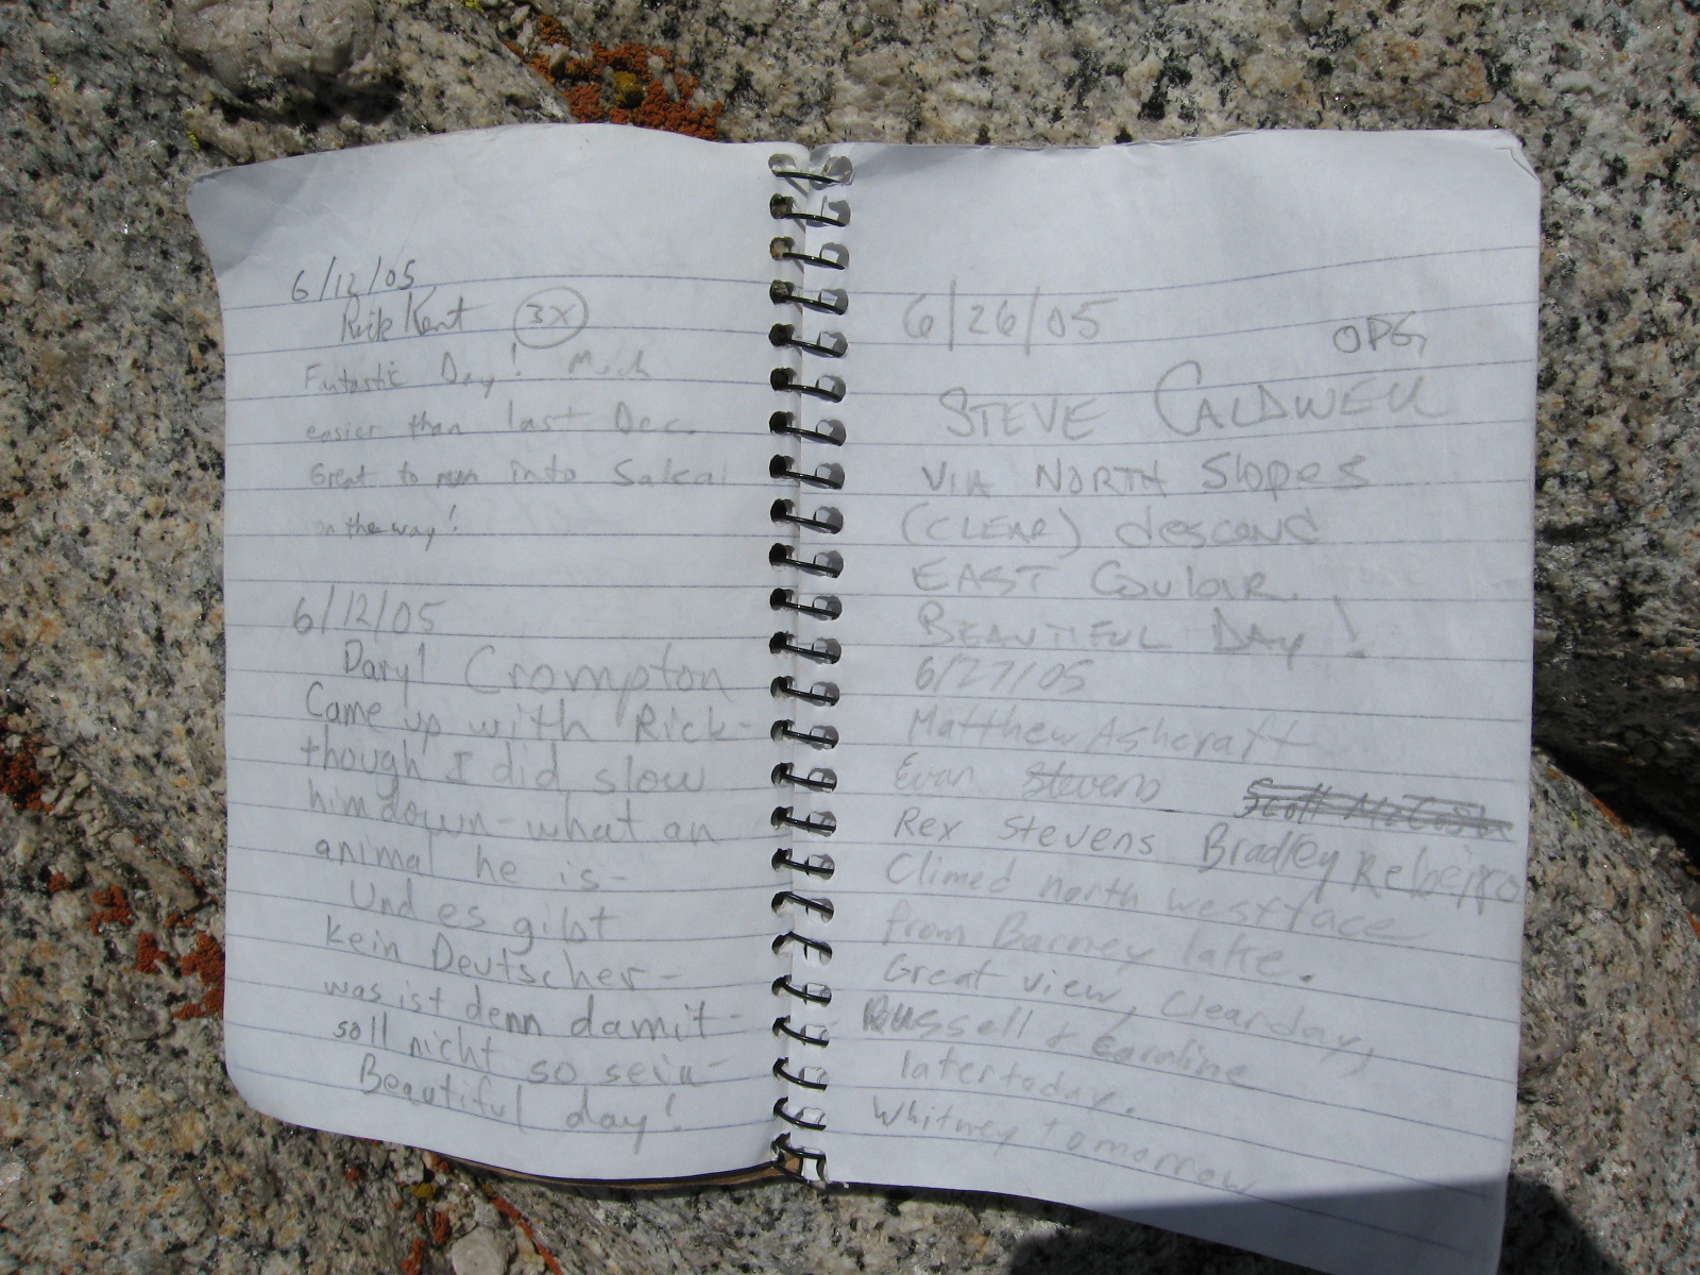 6/12/05
Rick Kent 3X
Fantastic Day! Much
easier than last Dec.
Great to run into Sakai
on the way!
6/12/05
Daryl Crompton
Came up with Rick-
though I did slow
him down - what an
animal he is -
Und es gibt
kein Deutscher -
was ist denn damit -
soll nicht so sein -
Beautiful day!
6/26/05
OPG
STEVE CALDWELL
VIA NORTH Slopes
(CLEAR) descend
EAST Couloir.
BEAUTIFUL DAy!
6/27/05
Matthew Ashcraft
Evan Stevens
Rex Stevens Bradley Rebeiro
Climed north west face
from Barney lake.
Great view, Clear day,
Russell & Caroline
later today.
Whitney tomorrow